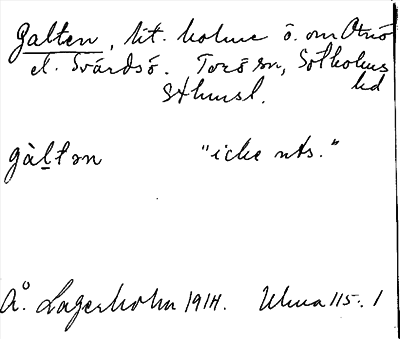 Galten, lit. holme ö. om Otnö
el. Svärdsö. Torö sn, Sotholms
hd
Sthmsl.
gàltən "icke uts."
Å. Lagerholm 1914. Ulma 115:1